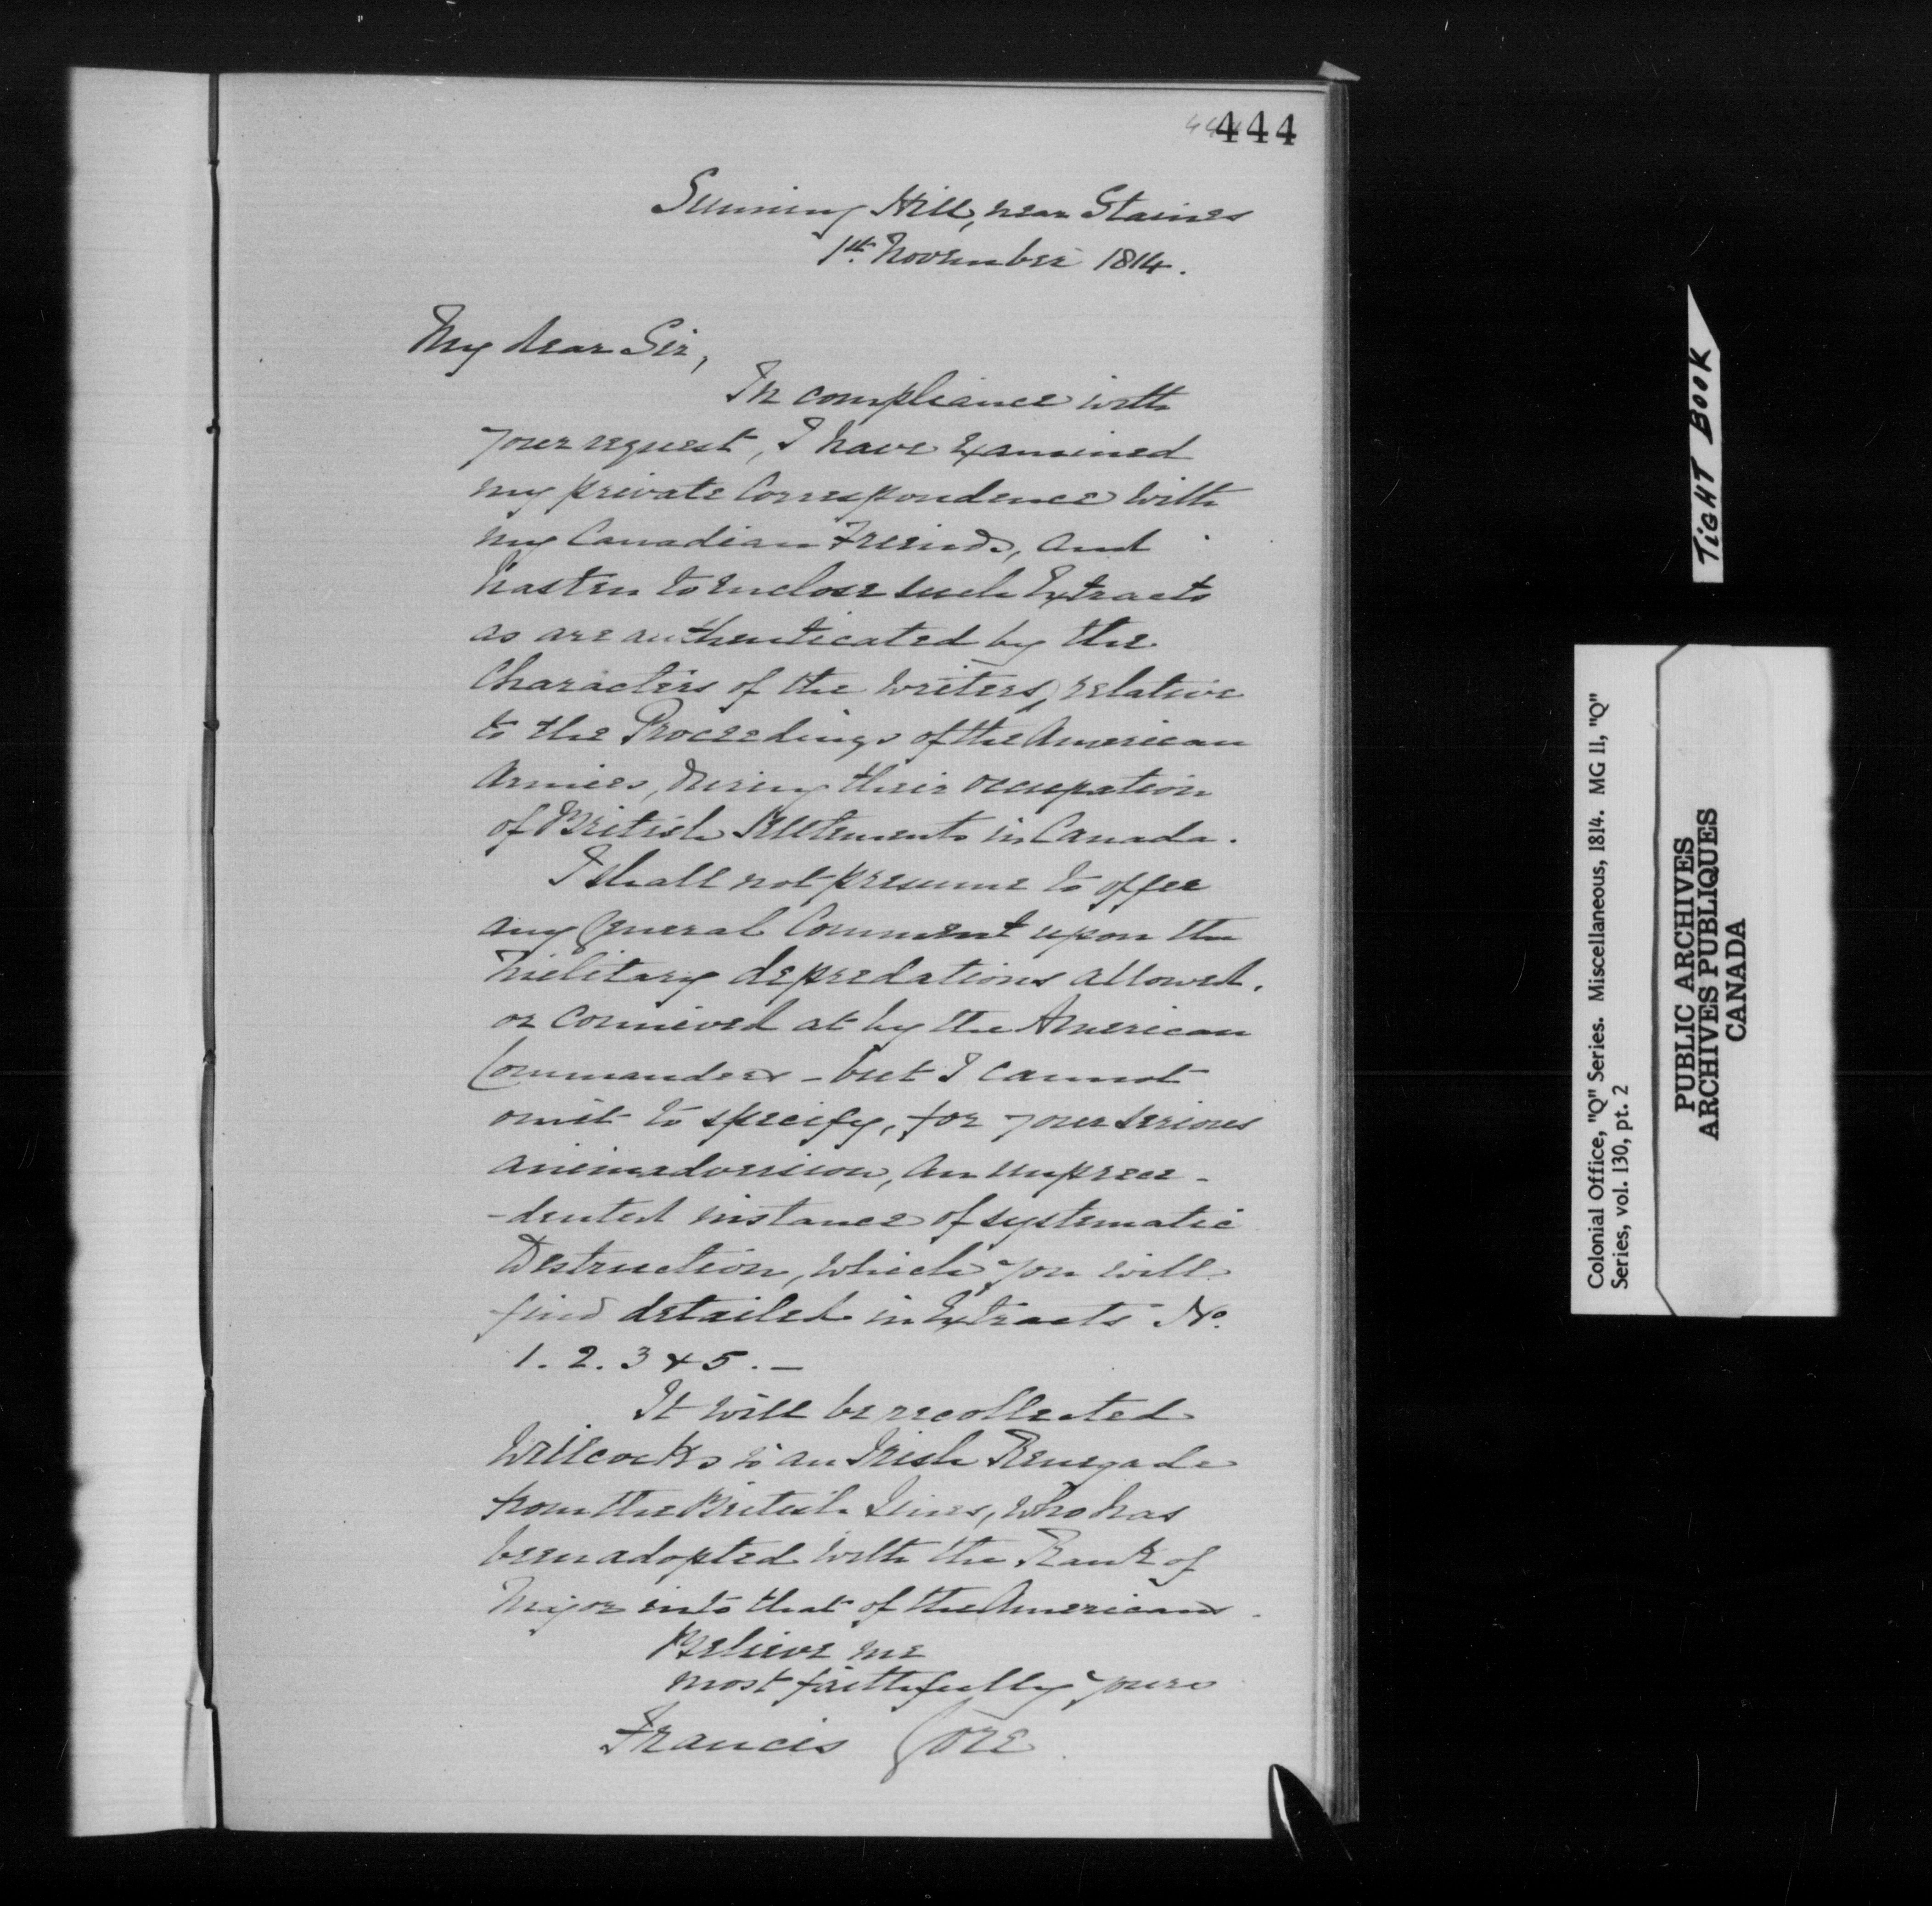 444
Sunning Hill, near Staines
1st. November 1814.
My dear Sir,
In compliance with
your request, I have examined
my private Correspondence with
my Canadian Freinds, and
hasten to enclose such Extracts
as are authenticated by the
Characters of the writers, relative
to the Proceedings of the American
Armies, during their occupation
of British Settlements in Canada.
I shall not presume to offer
any General Comment upon the
Military depredations allowed,
or connived at by the American
Commanders - but I cannot
omit to specify, for your serious
animadversion, an unprece-
-dented instance of systematic
Destruction, which you will
find detailed in Extracts No.
1. 2. 3 & 5. —
It will be recollected
Willcocks is an Irish Renegade
from the British Lines, who has
been adopted with the Rank of
Major into that of the Americans.
Believe me
most faithfully yours
Francis Gore
TIGHT BOOK
Colonial Office, "Q" Series. Miscellaneous, 1814. MG 11, "Q"
Series, vol. 130, pt. 2
PUBLIC ARCHIVES
ARCHIVES PUBLIQUES
CANADA